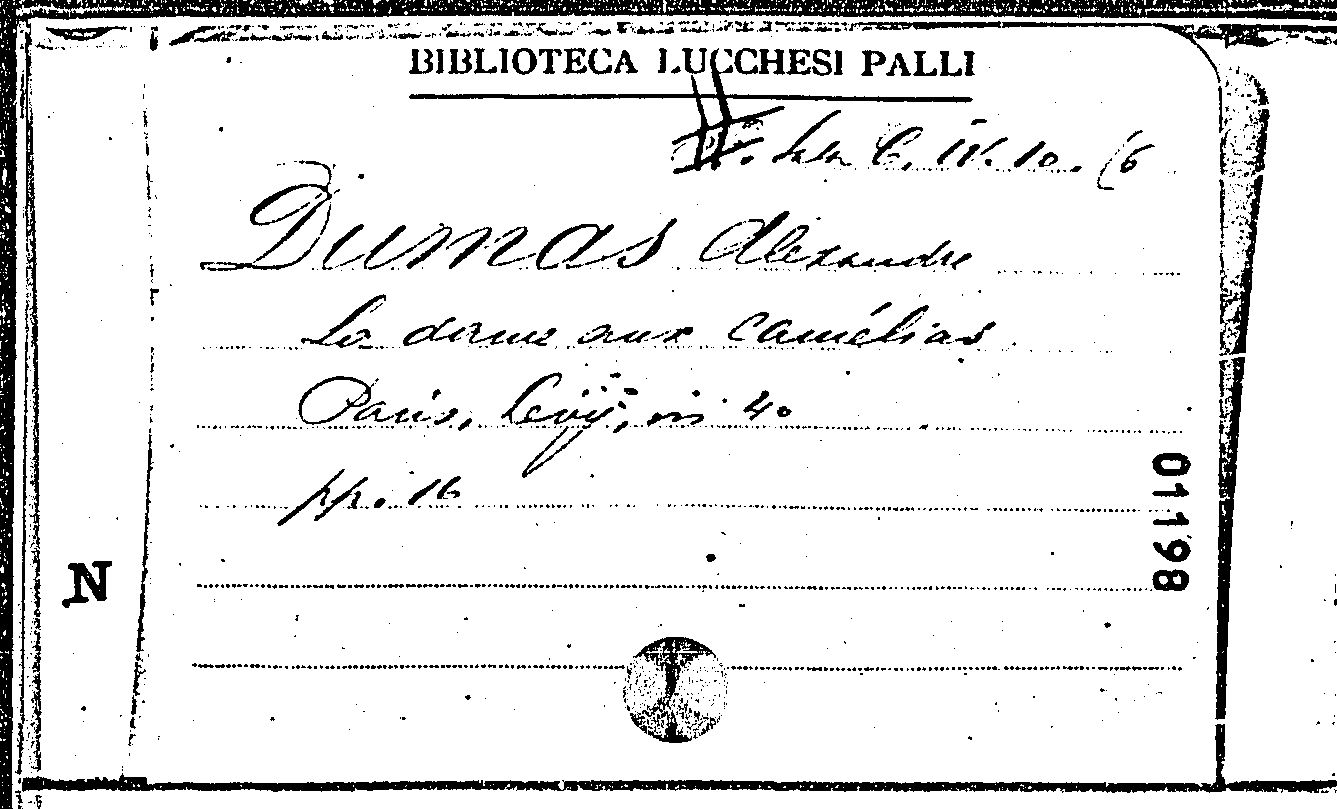 BIBLIOTECA LUCCHESI PALLI
C. IV. 10. (6
Dumas Alexandre
La dame aux camélias
Paris, Lévy, in 4o
pp. 16
01198
N